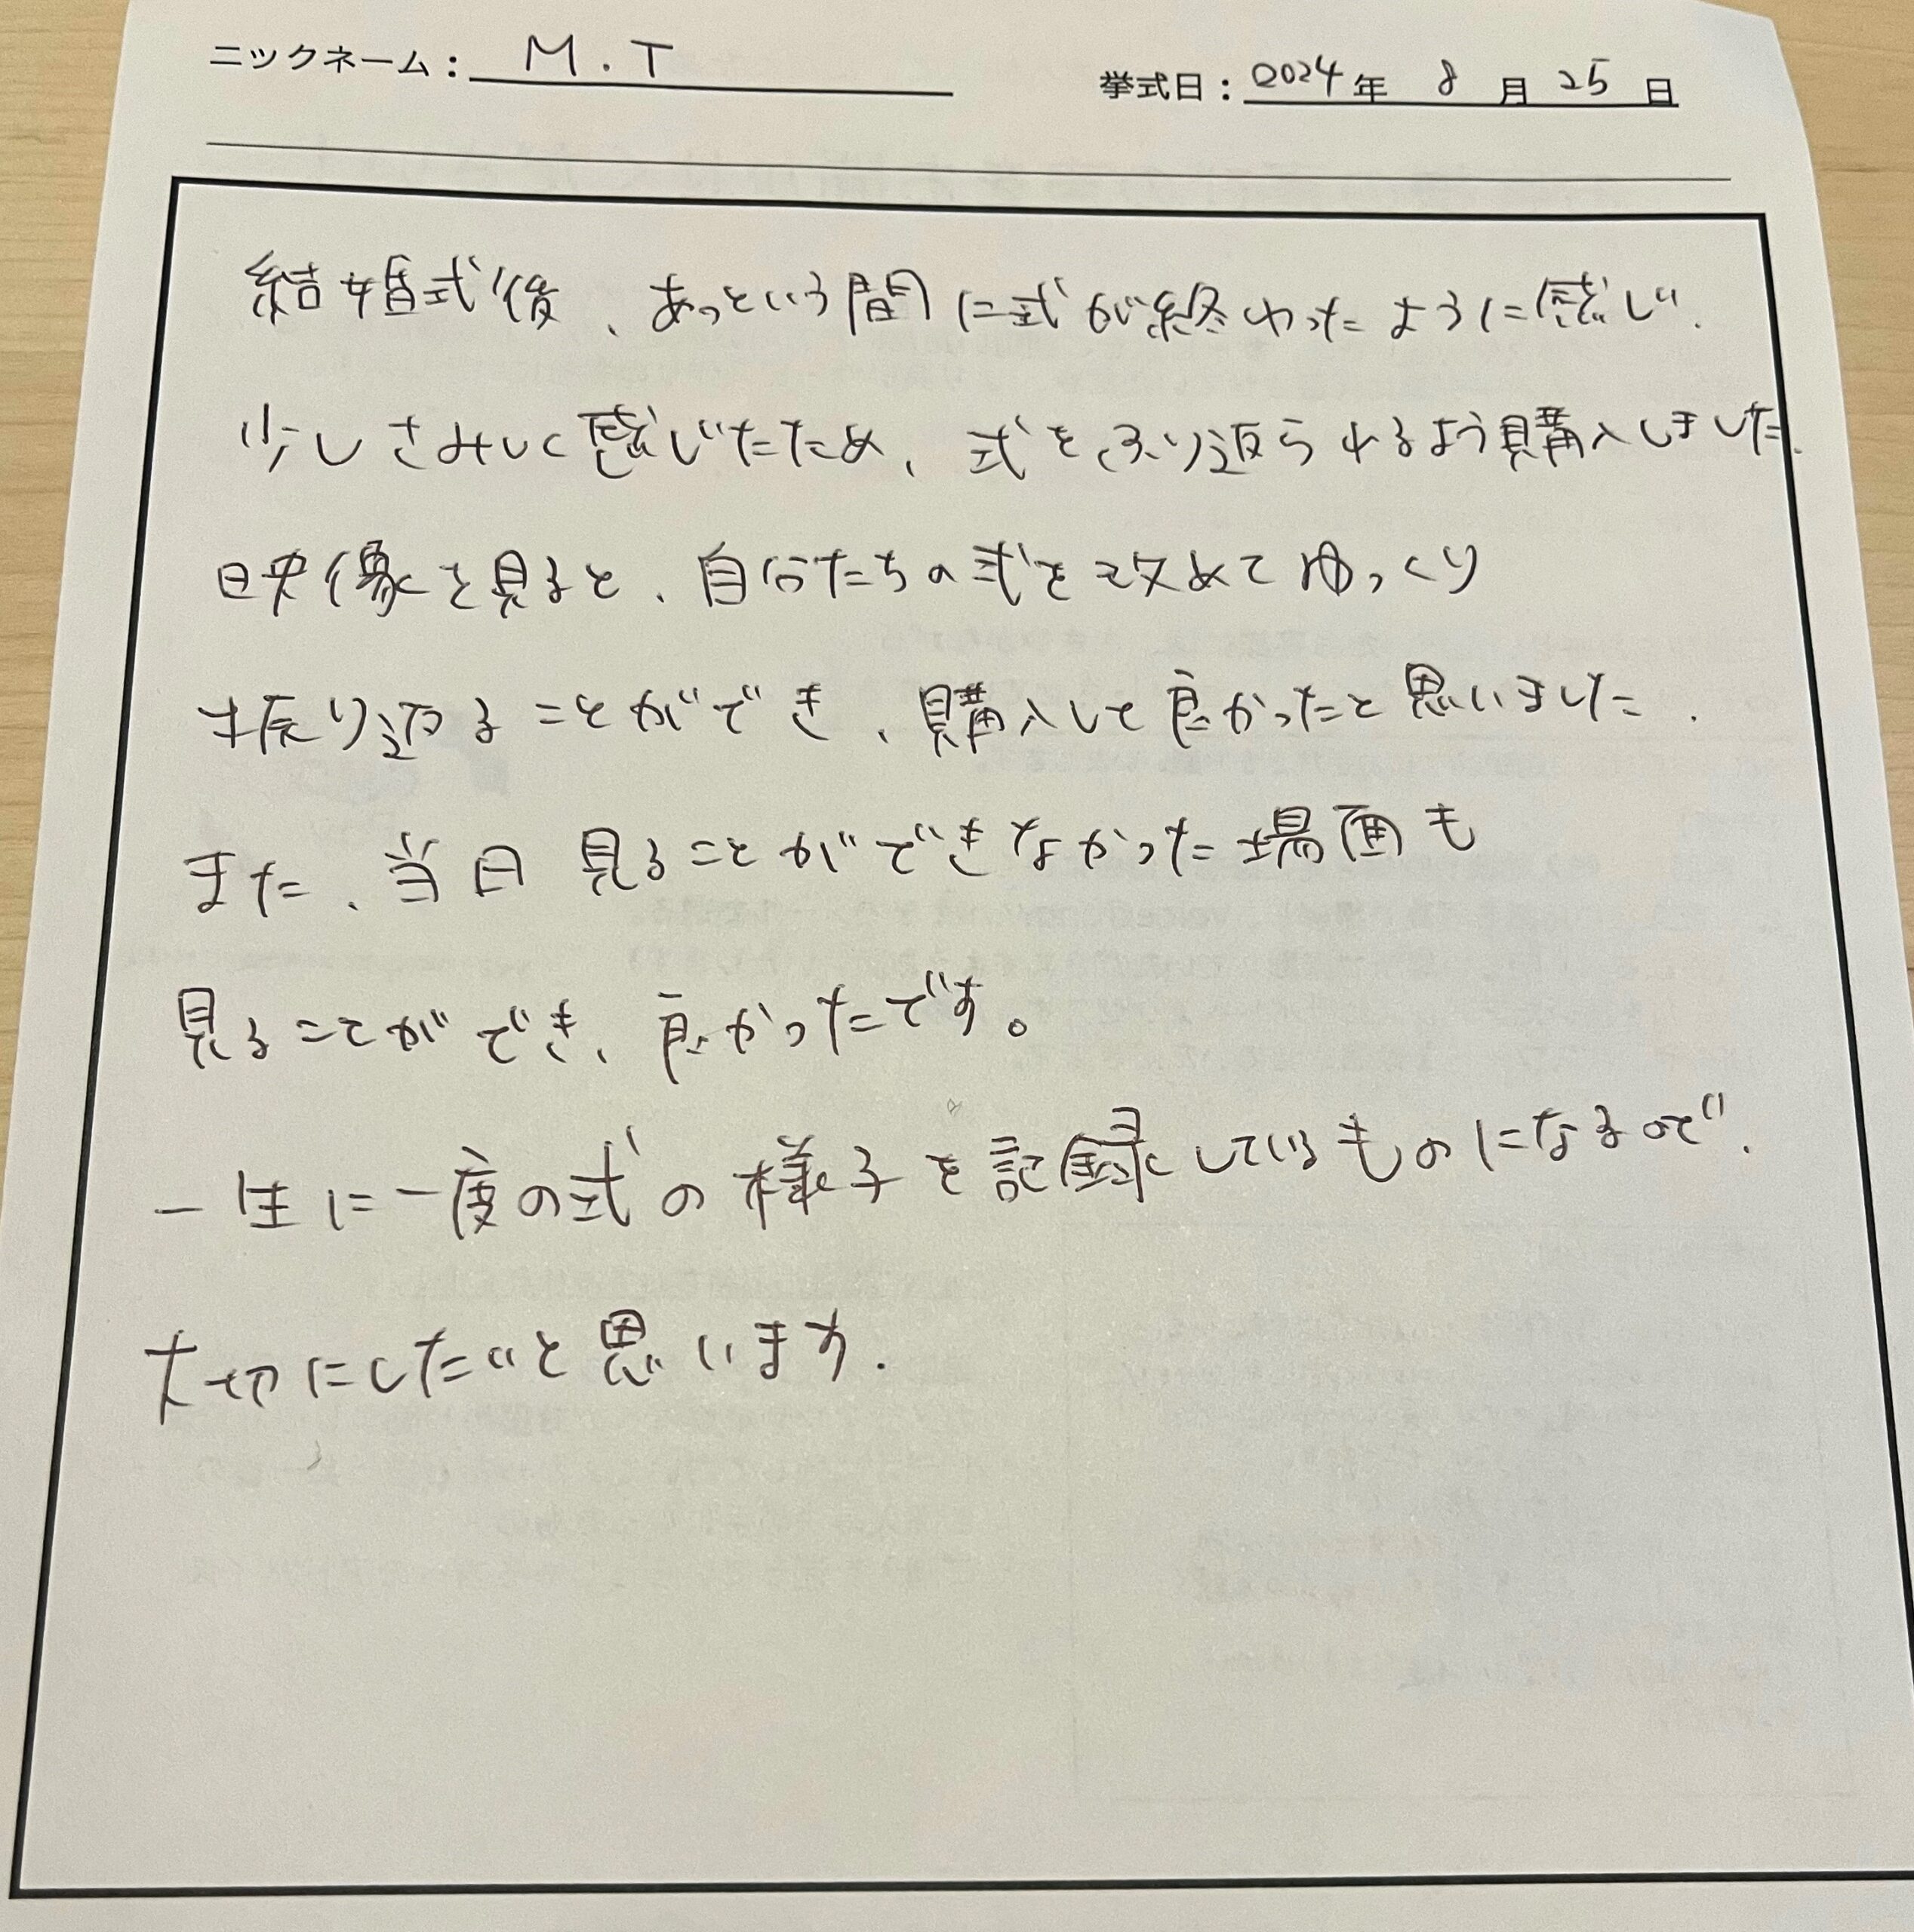 ニックネーム： M.T 挙式日：2024年 8月 25日
結婚式後、あっという間に式が終わったように感じ、
少しさみしく感じたため、式をふり返られるよう購入しました。
映像を見ると、自分たちの式を改めてゆっくり
振り返ることができ、購入して良かったと思いました。
また、当日見ることができなかった場面も
見ることができ、良かったです。
一生に一度の式の様子を記録しているものになるので、
大切にしたいと思います。